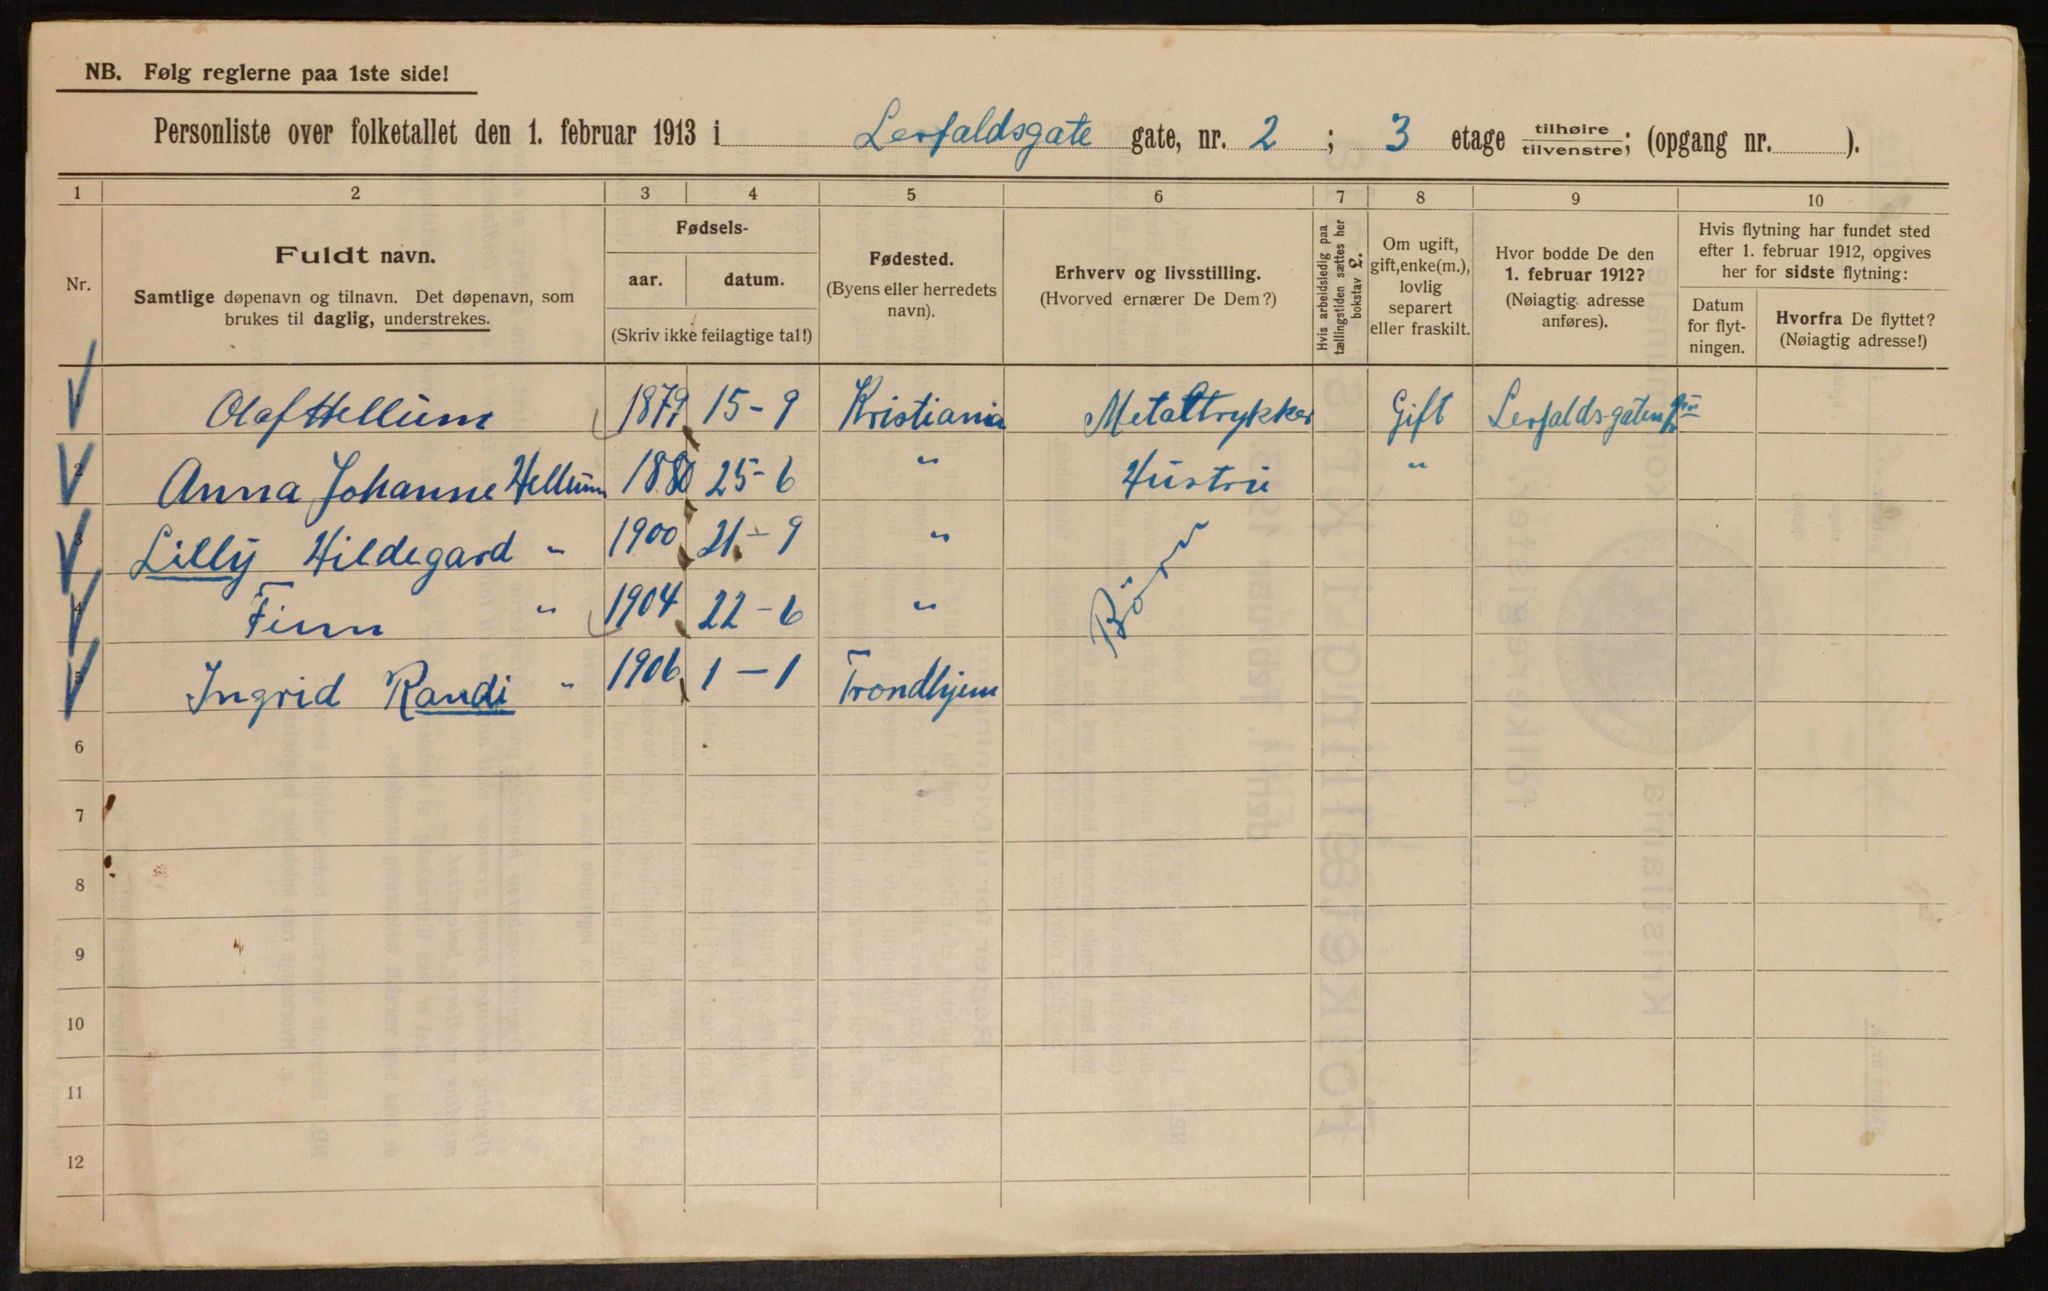 NB. Følg reglerne paa 1ste side!
Personliste over folketallet den 1. februar 1913 i Lerfaldsgate gate, nr. 2 ; 3 etage tilhøire tilvenstre; (opgang nr. ).
1 2 3 4 5 6 7 8 9 10
Nr.
Fuldt navn.
Samtlige døpenavn og tilnavn. Det døpenavn, som
brukes til daglig, understrekes.
Fødsels-
aar. datum.
(Skriv ikke feilagtige tal!)
Fødested.
(Byens eller herredets
navn).
Erhverv og livsstilling.
(Hvorved ernærer De Dem?)
Hvis arbeidsledig paa
tællingstiden sættes her
bokstav L.
Om ugift,
gift, enke(m.),
lovlig
separert
eller fraskilt.
Hvor bodde De den
1. februar 1912?
(Nøiagtig adresse
anføres).
Hvis flytning har fundet sted
efter 1. februar 1912, opgives
her for sidste flytning:
Datum
for flyt-
ningen.
Hvorfra De flyttet?
(Nøiagtig adresse!)
1 Olaf Hellum 1879 15-9 Kristiania Metaltrykker Gift Lerfalds-gaten
2 Anna Johanne Hellum 1880 25-6 " Hustru "
3 Lilly Hildegard " 1900 21-9 "
Börn
4 Finn " 1904 22-6 "
5 Ingrid Randi " 1906 1-1 Trondhjem
6
7
8
9
10
11
12